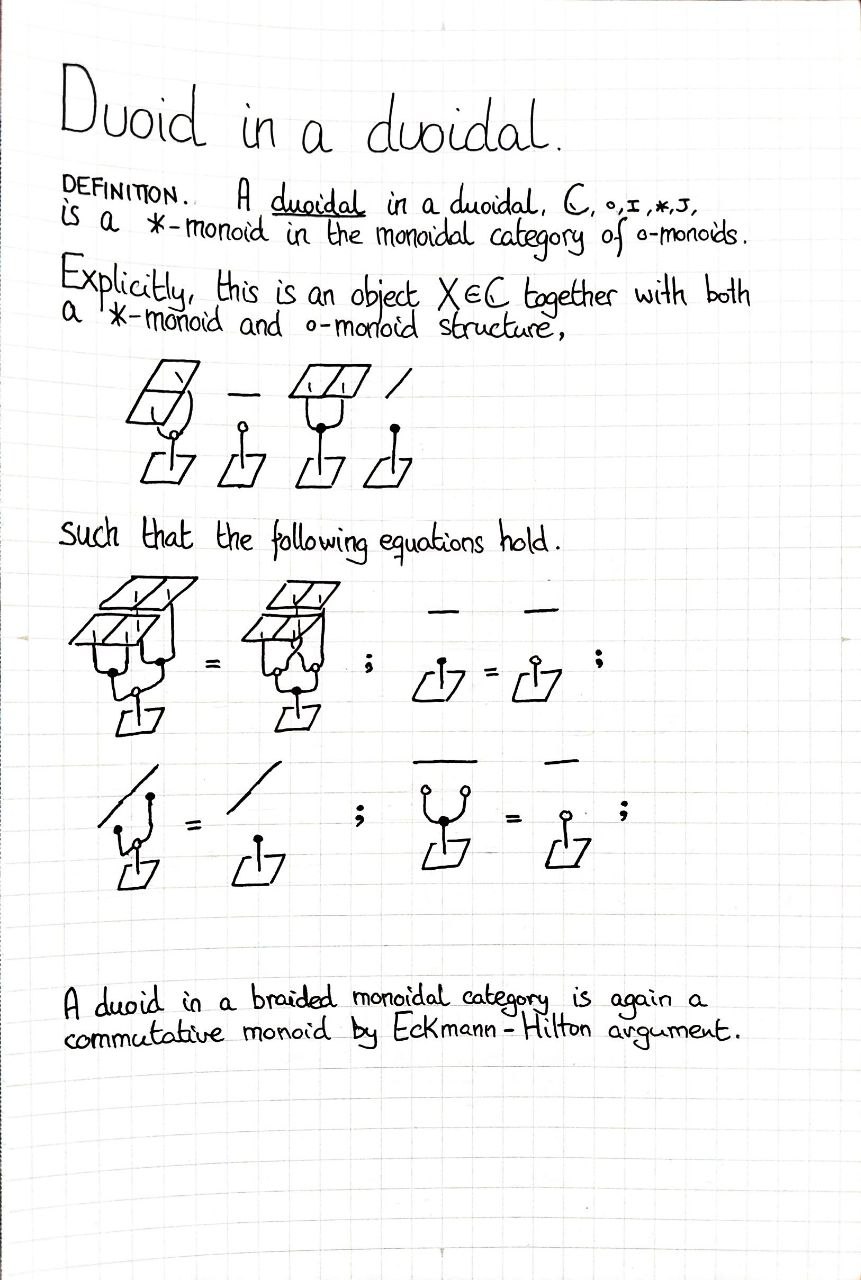 Duoid in a duoidal.
DEFINITION. A duoidal in a duoidal, ℂ, ∘, I, *, J,
is a *-monoid in the monoidal category of ∘-monoids.
Explicitly, this is an object X∈ℂ together with both
a *-monoid and ∘-monoid structure,
such that the following equations hold.
= ; = ;
= ; = ;
A duoid in a braided monoidal category is again a
commutative monoid by Eckmann-Hilton argument.